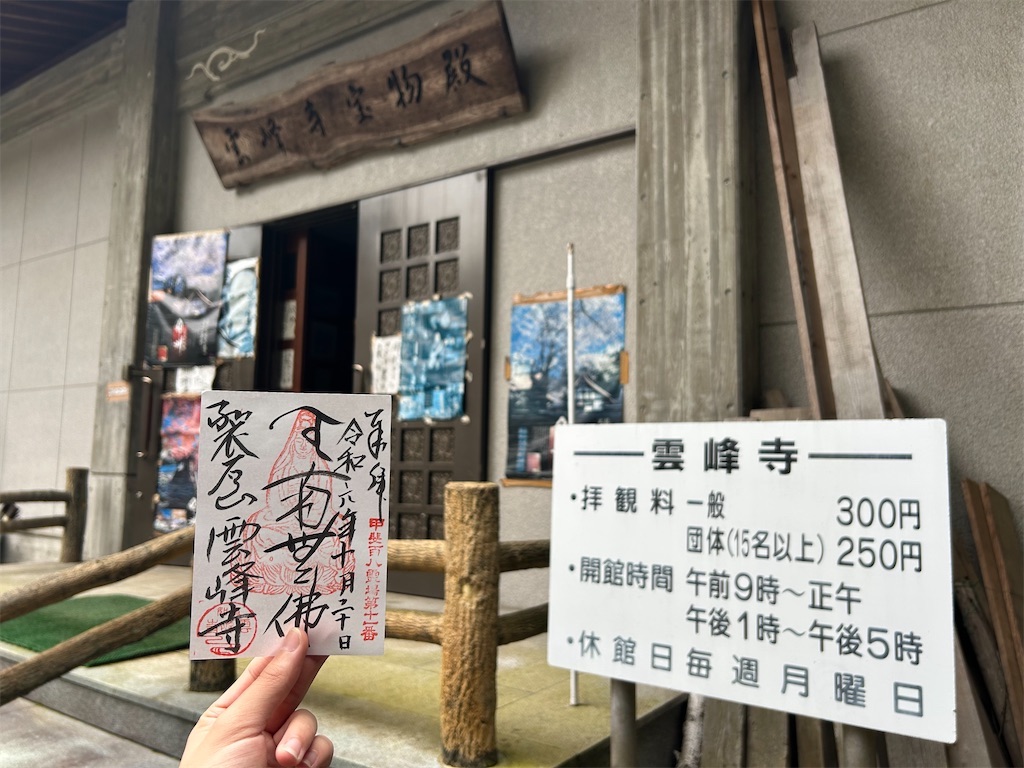 雲峰寺宝物殿
奉拝
令和六年十月二十日
甲斐百八霊場第十一番
南無仏
裂石 雲峰寺
雲峰寺
・拝観料 一般 300円
団体(15名以上) 250円
・開館時間 午前9時～正午
午後1時～午後5時
・休館日 毎週月曜日